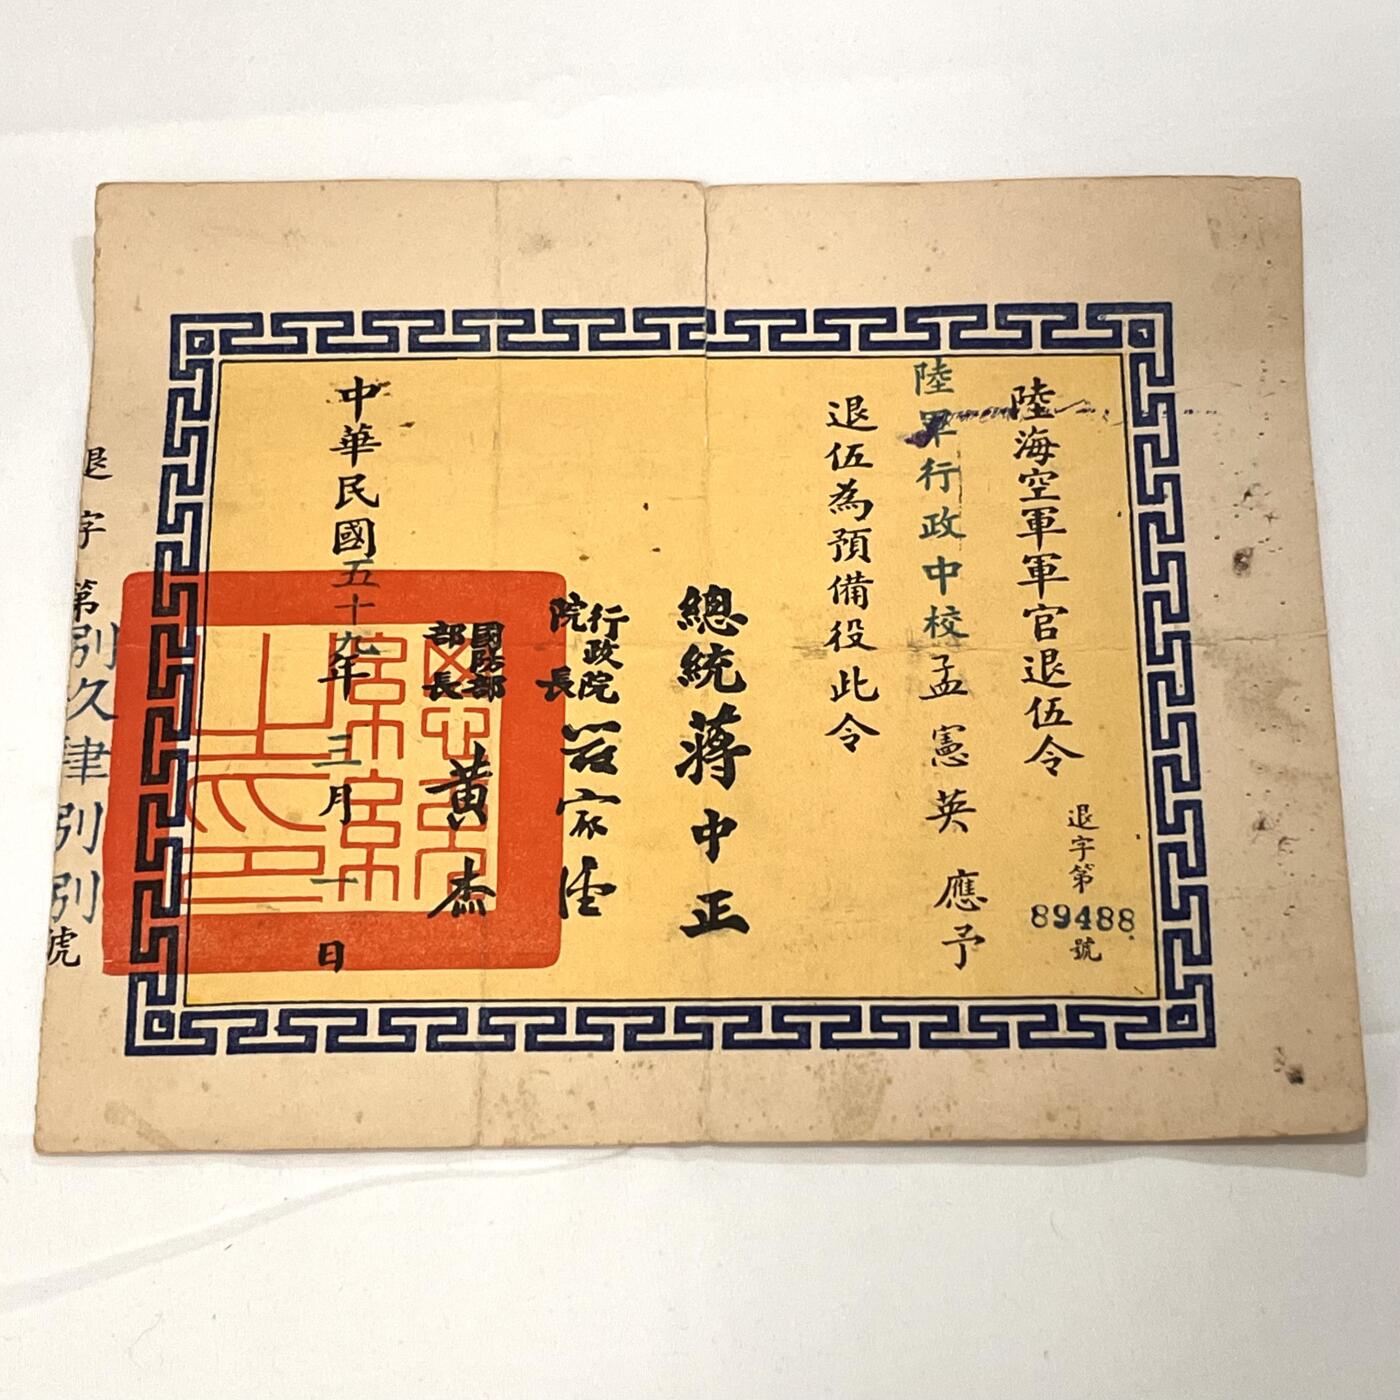 陸海空軍軍官退伍令
退字第
89488
號
陸軍行政中校孟憲英應予
退伍為預備役此令
總統蔣中正
行政院院長嚴家淦
國防部部長黃杰
中華民國五十九年三月一日
總統之印
退字第捌玖肆捌捌號